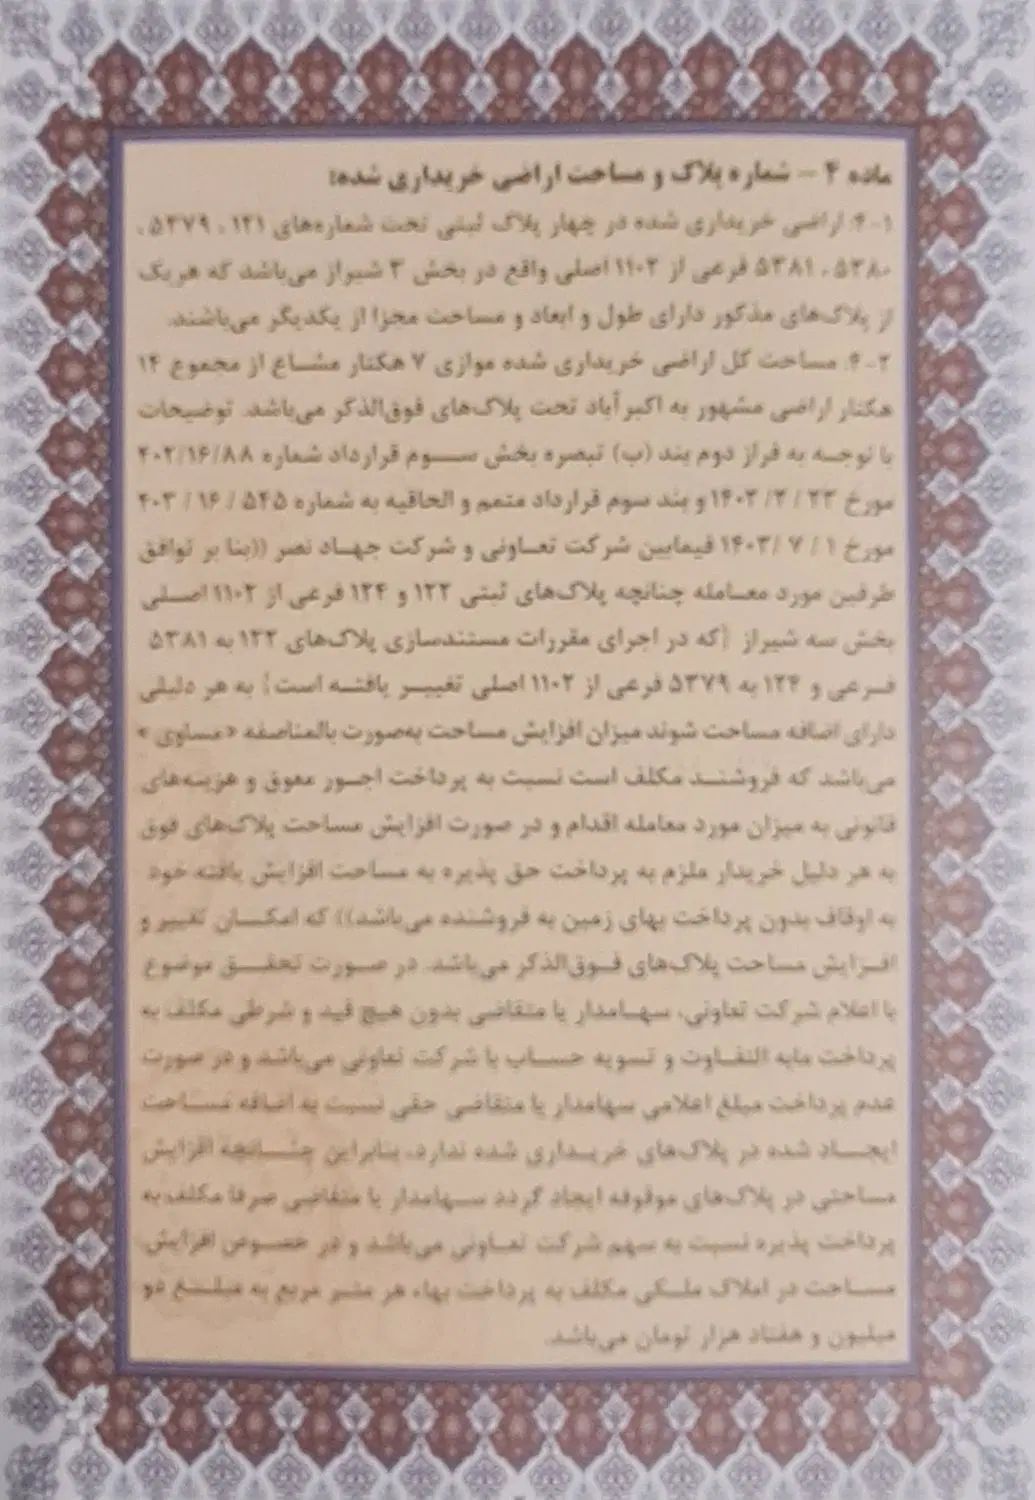 ماده ۴ – شماره پلاک و مساحت اراضی خریداری شده:
۴-۱: اراضی خریداری شده در چهار پلاک ثبتی تحت شماره‌های ۱۲۱ ، ۵۳۷۹ ،
۵۳۸۰ ، ۵۳۸۱ فرعی از ۱۱۰۲ اصلی واقع در بخش ۳ شیراز می‌باشد که هریک
از پلاک‌های مذکور دارای طول و ابعاد و مساحت مجزا از یکدیگر می‌باشند.
۴-۲: مساحت کل اراضی خریداری شده موازی ۷ هکتار مشاع از مجموع ۱۴
هکتار اراضی مشهور به اکبرآباد تحت پلاک‌های فوق‌الذکر می‌باشد. توضیحات
با توجه به فراز دوم بند (ب) تبصره بخش سوم قرارداد شماره ۴۰۲/۱۶/۸۸
مورخ ۲۳ / ۲/ ۱۴۰۲ و بند سوم قرارداد متمم و الحاقیه به شماره ۵۴۵ / ۱۶ / ۴۰۳
مورخ ۱ / ۷ /۱۴۰۳ فیمابین شرکت تعاونی و شرکت جهاد نصر ((بنا بر توافق
طرفین مورد معامله چنانچه پلاک‌های ثبتی ۱۲۲ و ۱۲۴ فرعی از ۱۱۰۲ اصلی
بخش سه شیراز [که در اجرای مقررات مستندسازی پلاک‌های ۱۲۲ به ۵۳۸۱
فرعی و ۱۲۴ به ۵۳۷۹ فرعی از ۱۱۰۲ اصلی تغییر یافته است] به هر دلیلی
دارای اضافه مساحت شوند میزان افزایش مساحت به‌صورت بالمناصفه «مساوی »
می‌باشد که فروشند مکلف است نسبت به پرداخت اجور معوق و هزینه‌های
قانونی به میزان مورد معامله اقدام و در صورت افزایش مساحت پلاک‌های فوق
به هر دلیل خریدار ملزم به پرداخت حق پذیره به مساحت افزایش یافته خود
به اوقاف بدون پرداخت بهای زمین به فروشنده می‌باشد)) که امکان تغییر و
افزایش مساحت پلاک‌های فوق‌الذکر می‌باشد. در صورت تحقق موضوع
با اعلام شرکت تعاونی، سهامدار یا متقاضی بدون هیچ قید و شرطی مکلف به
پرداخت مابه التفاوت و تسویه حساب با شرکت تعاونی می‌باشد و در صورت
عدم پرداخت مبلغ اعلامی سهامدار یا متقاضی حقی نسبت به اضافه مساحت
ایجاد شده در پلاک‌های خریداری شده ندارد، بنابراین چنانچه افزایش
مساحتی در پلاک‌های موقوفه ایجاد گردد سهامدار یا متقاضی صرفا مکلف به
پرداخت پذیره نسبت به سهم شرکت تعاونی می‌باشد و در خصوص افزایش
مساحت در املاک ملکی مکلف به پرداخت بهاء هر متر مربع به مبلغ دو
میلیون و هفتاد هزار تومان می‌باشد.